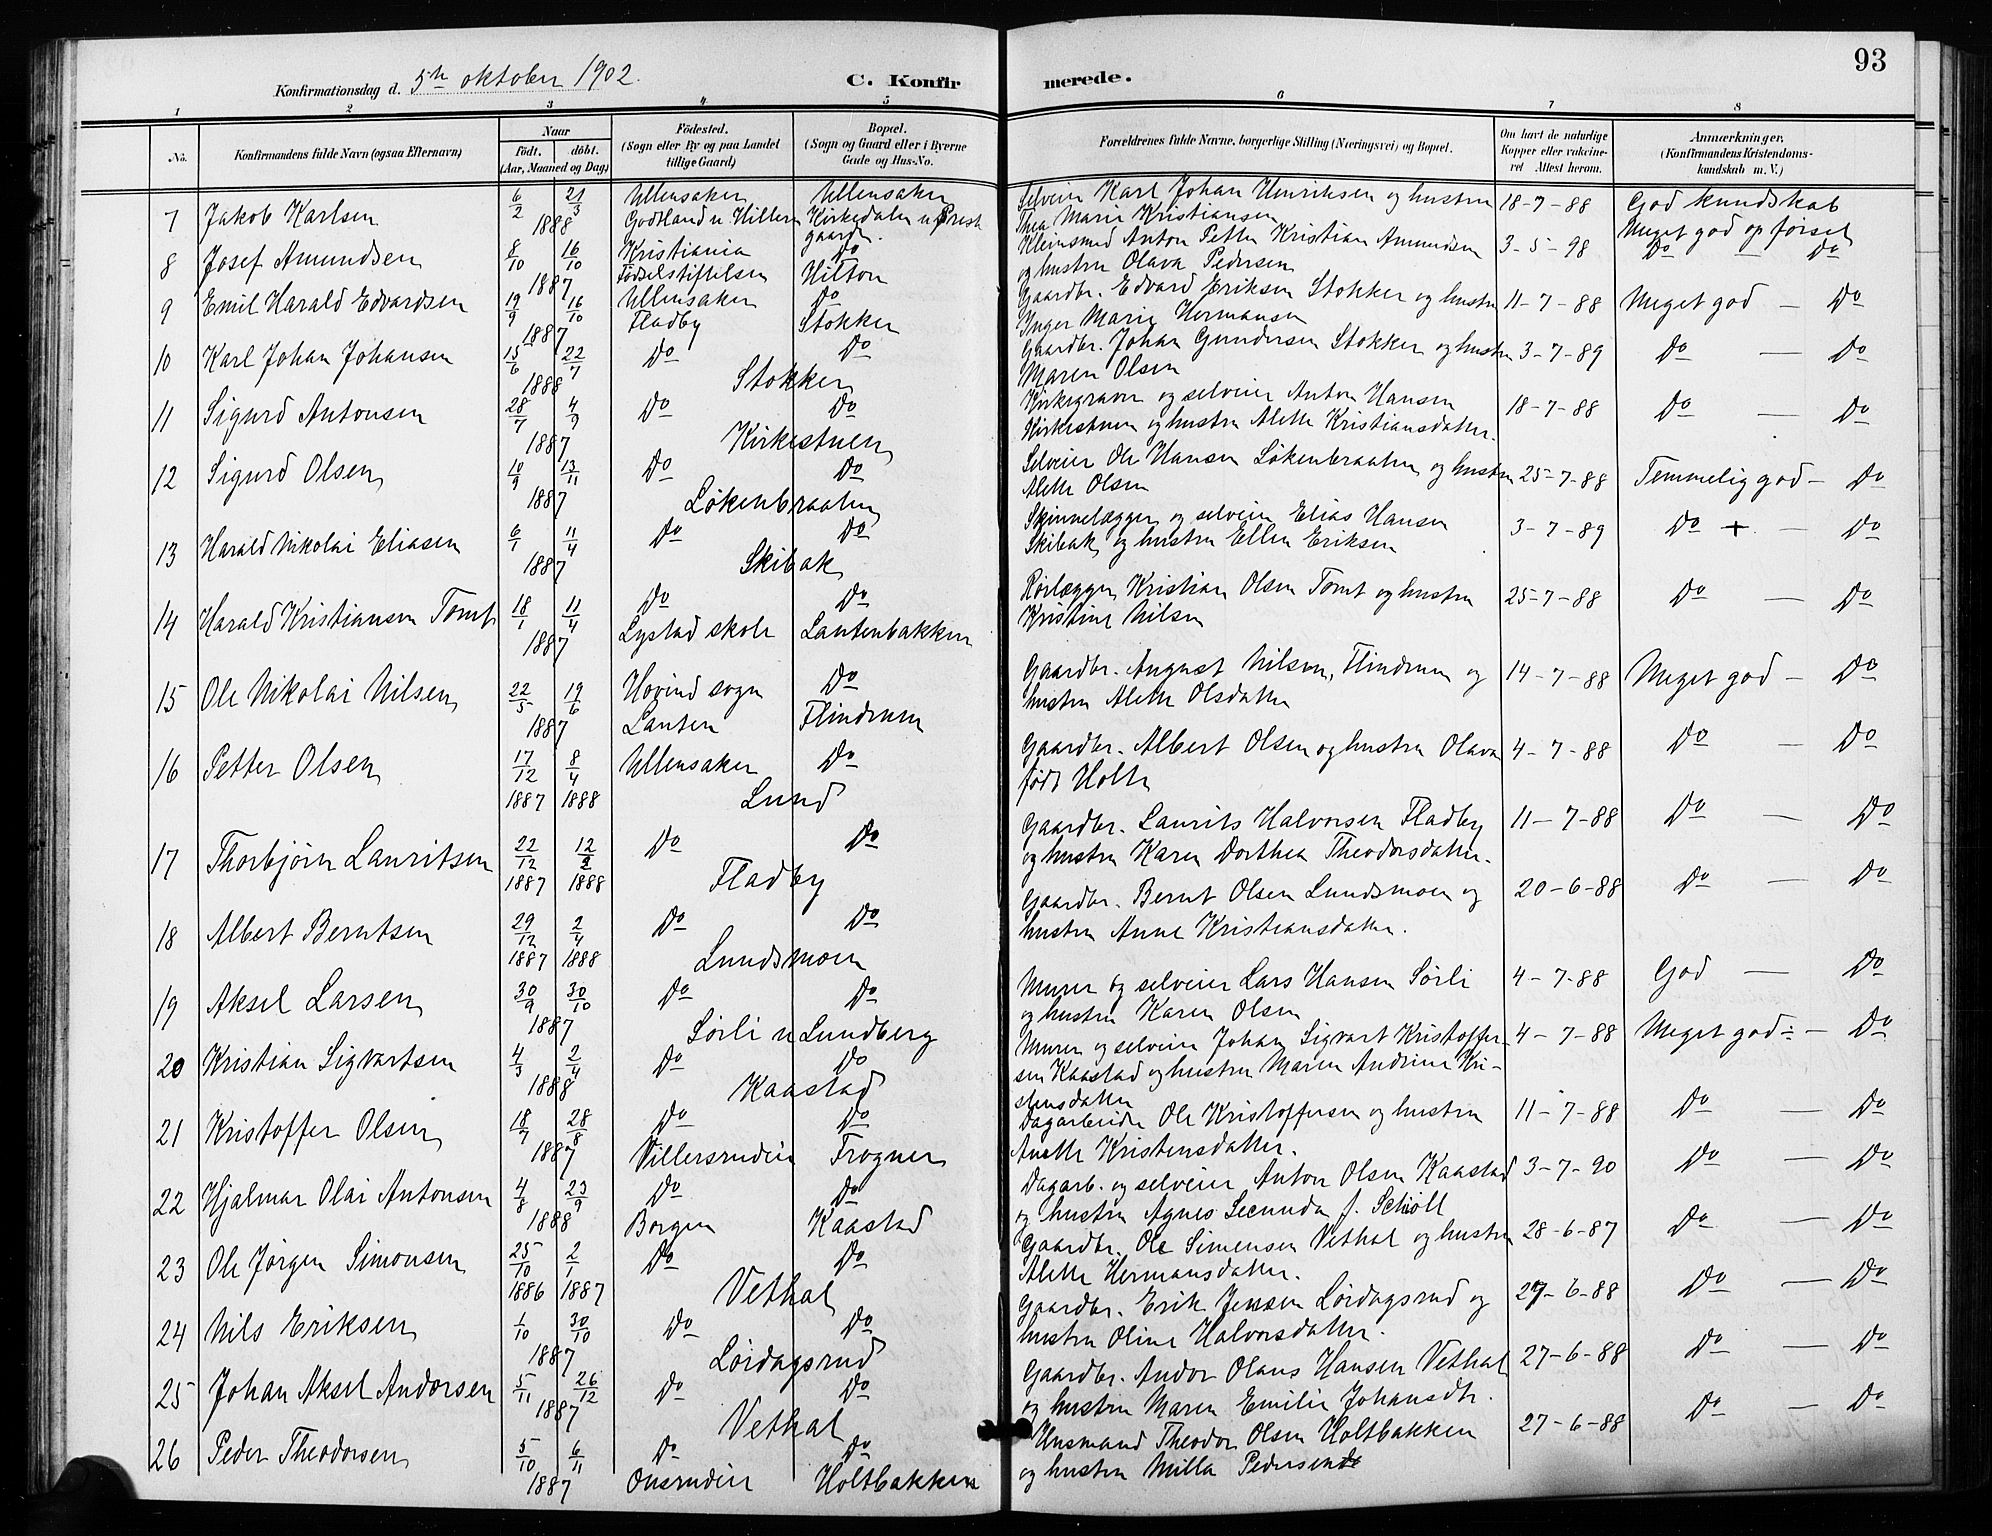 93
Konfirmationsdag d. 5th oktober 1902. C. Konfirmerede.
1 2 3 4 5 6 7 8
No. Konfirmandens fulde Navn (ogsaa Efternavn) Naar Födt. döbt. (Aar, Maaned og Dag) Födested. (Sogn eller By og paa Landet tillige Gaard) Bopæl. (Sogn og Gaard eller i Byerne Gade og Hus-No. Forældrenes fulde Navne, borgerlige Stilling (Næringsvei) og Bopæl. Om havt de naturlige Kopper eller vakcineret Attest herom. Anmærkninger, (Konfirmandens Kristendomskundskab m. V.)
7 Jakob Karlsen 6/2 21/3 1888 Ullensaker Ullensaker Selveier Karl Johan Henriksen og hustru 18-7-88 God kundskab
Godtland u Hilleren Kirkedalen u Prestgaarden. Thea Marie Kristiansen Meget god opførsel
8 Josef Amundsen 8/10 16/10 1887 Kristiania Do Kleinsmed Anton Petter Kristian Amundsen 3-5-98 Do — Do
Fødselstiftelsen Hilton og hustru Olava Pedersen
9 Emil Harald Edvardsen 19/9 16/10 1887 Ullensaker Do Gaardbr. Edvard Eriksen Stokker og hustru 11-7-88 Meget god — Do
Fladby Stokker Inger Marie Hermansen
10 Karl Johan Johansen 15/6 22/7 1888 Do Do Gaardbr. Johan Gundersen Stokker og hustru 3-7-89 Do — Do
Stokker Maren Olsen
11 Sigurd Antonsen 28/7 4/9 1887 Do Do Kirkegraver og selveier Anton Hansen 18-7-88 Do — Do
Kirkestuen Kirkestuen og hustru Alette Kristiansdatter.
12 Sigurd Olsen 10/9 13/11 1887 Do Do Selveier Ole Hansen Løkenbraaten og hustru 25-7-88 Temmelig god — Do
Løkenbraaten Alette Olsen
13 Harald Nikolai Eliasen 6/1 11/4 1887 Do Do Skinnelægger og selveier Elias Hansen 3-7-89 Do + — Do
Skibak Skibak og hustru Ellen Eriksen
14 Harald Kristiansen Tomt 18/1 11/4 1887 Do Do Rørlægger Kristian Olsen Tomt og hustru 25-7-88 Do — Do
Lystad skole Lautenbakken Kristine Nilsen
15 Ole Nikolai Nilsen 22/5 19/6 1887 Hovind sogn Do Gaardbr. August Nilsen, Flindrum og 14-7-88 Meget god — Do
Lauten Flindrum hustru Alette Olsdatter
16 Petter Olsen 17/12 8/4 1887 1888 Ullensaker Do Gaardbr. Albert Olsen og hustru Olava 4-7-88 Do — Do
Lund født Holte
17 Thorbjørn Lauritsen 22/12 12/2 1887 1888 Do Do Gaardbr. Laurits Halvorsen Fladby 11-7-88 Do — Do
Fladby og hustru Karen Dorthea Theodorsdatter.
18 Albert Berntsen 29/12 2/4 1887 1888 Do Do Gaardbr. Bernt Olsen Lundsmoen og 20-6-88 Do — Do
Lundsmoen hustru Anne Kristiansdatter.
19 Aksel Larsen 30/9 30/10 1887 Do Do Murer og selveier Lars Hansen Sørli 4-7-88 God — Do
Sørli u Lundberg og hustru Karen Olsen
20 Kristian Sigvartsen 4/3 2/4 1888 Do Do Murer og selveier Johan Sigvart Kristoffer- 4-7-88 Meget god — Do
Kaastad sen Kaastad og hustru Maren Andrine Kri-
stensdatter
21 Kristoffer Olsen 18/7 28/8 1887 Do Do Dagarbeider Ole Kristoffersen og hustru 11-7-88 Do — Do
Villersrudeie Frogner Anette Kristensdatter.
22 Hjalmar Olai Antonsen 4/8 23/9 1888 Do Do Dagarb. og selveier Anton Olsen Kaastad 3-7-90 Do — Do
Borgen Kaastad og hustru Agnes Secunda f. Schøll
23 Ole Jørgen Simonsen 25/10 2/1 1886 1887 Do Do Gaardbr. Ole Simensen Vethal og hustru 28-6-87 Do — Do
Vethal Alette Hermansdatter.
24 Nils Eriksen 1/10 30/10 1887 Do Do Gaardbr. Erik Jensen Lørdagsrud og 27-6-88 Do — Do
Lørdagsrud hustru Oline Halvorsdatter.
25 Johan Aksel Andorsen 5/11 26/12 1887 Do Do Gaardbr. Andor Olaus Hansen Vethal 27-6-88 Do — Do
Vethal og hustru Maren Emilie Johansdtr.
26 Peder Theodorsen 5/10 6/11 1887 Do Do Husmand Theodor Olsen Holtbakken 27-6-88 Do — Do
Onsrudeie Holtbakken og hustru Milla Pedersen